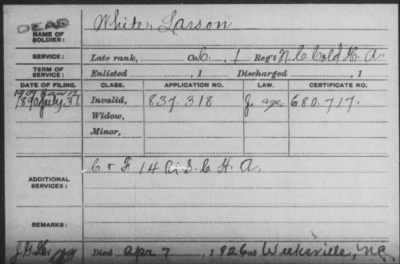 DEAD
NAME OF SOLDIER: Whites, Larson
SERVICE: Late rank, Co. C, 1 Reg't N.C. Cold H.A.
TERM OF SERVICE: Enlisted , 1 Discharged , 1
DATE OF FILING. CLASS. APPLICATION NO. LAW. CERTIFICATE NO.
1890 July 31 Invalid, 837.318 680.717.
Widow,
Minor,
C & F 14 U.S.C.H.A.
ADDITIONAL SERVICES:
REMARKS:
Died Apr 7, 1926 at Weeksville, N.C.